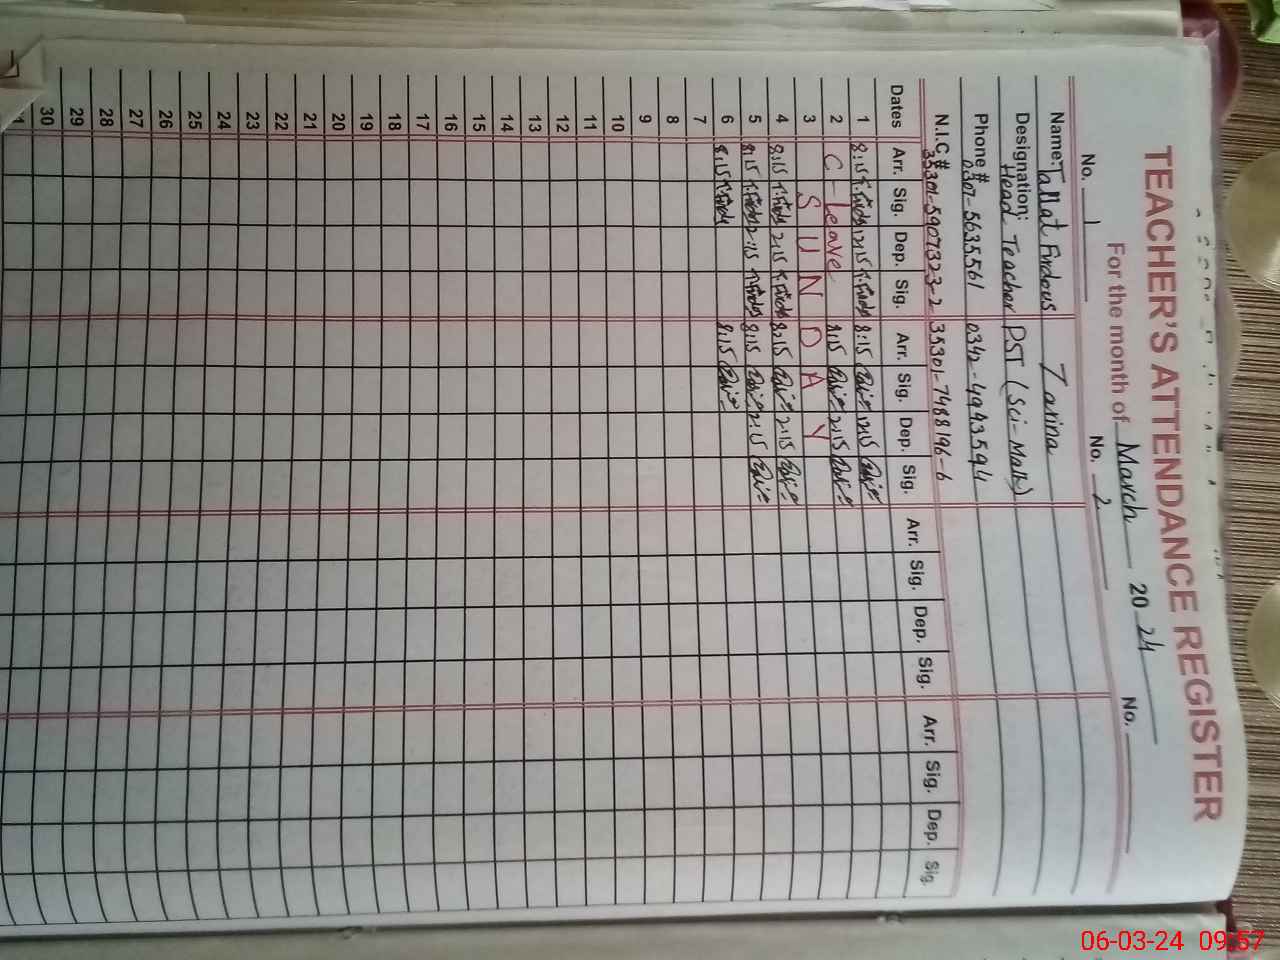 TEACHER'S ATTENDANCE REGISTER
For the month of March 2024
No. 1 No. 2 No.
Name: Tallat Firdous Zarina
Designation: Head Teacher PST (Sci-Math)
Phone # 0307-5635561 0342-4943594
N.I.C.# 35301-5907323-2 35301-7488196-6
Dates Arr. Sig. Dep. Sig. Arr. Sig. Dep. Sig. Arr. Sig. Dep. Sig. Arr. Sig. Dep. Sig.
1 8:15 T.Firdous 12:15 T.Firdous 8:15 12:15
2 C-Leave 8:15 2:15
3 SUNDAY
4 8:15 T.Firdous 2:15 T.Firdous 8:15 2:15
5 8:15 T.Firdous 2:15 T.Firdous 8:15 2:15
6 8:15 T.Firdous 8:15
7
8
9
10
11
12
13
14
15
16
17
18
19
20
21
22
23
24
25
26
27
28
29
30
06-03-24 09:57